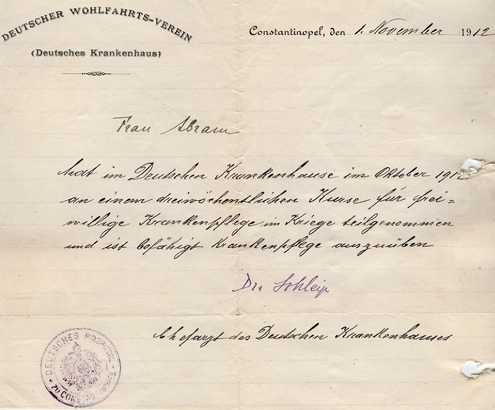 DEUTSCHER WOHLFAHRTS-VEREIN
(Deutsches Krankenhaus)
Constantinopel, den 1. November 1912
Frau Abram
hat im Deutschen Krankenhause im Oktober 1912
an einem dreiwöchentlichen Kurse für frei=
willige Krankenpflege im Kriege teilgenommen
und ist befähigt Krankenpflege auszuüben
Dr. Schleip
Chefarzt des Deutschen Krankenhauses
DEUTSCHES